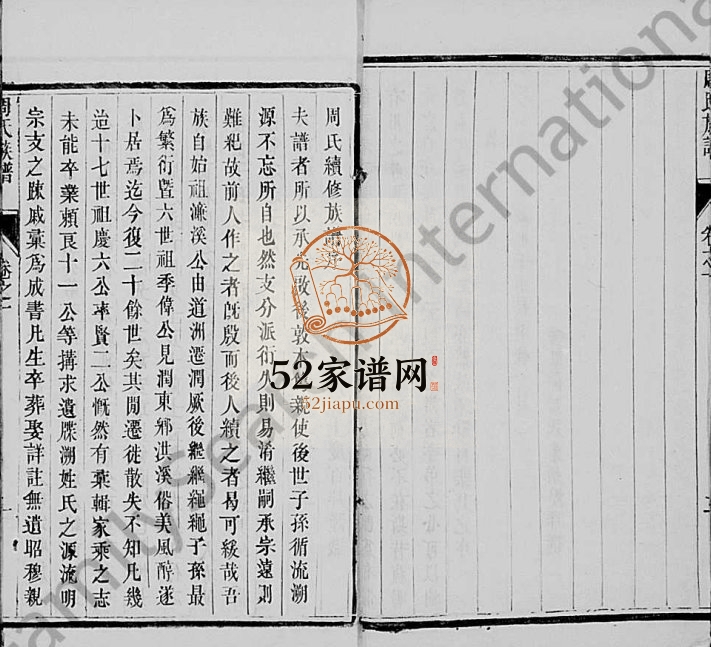 周氏續修族譜序
夫譜者所以承先啟後敦本親使後世子孫循流溯
源不忘所自也然支分派衍久則易淆繼嗣承宗遠則
難紀故前人作之者旣殷而後人續之者曷可緩哉吾
族自始祖濂溪公由道洲遷潤厥後繼繼繩繩子孫最
為繁衍暨六世祖季偉公見潤東鄉洪溪俗美風醇遂
卜居焉迄今復二十餘世矣其間遷徙散失不知凡幾
迨十七世祖慶六公率賢二公慨然有葉輯家乘之志
未能卒業賴良十一公等搆求遺牒溯姓氏之源流明
宗支之踈戚彙為成書凡生卒葬娶詳註無遺昭穆親
周氏族譜
卷之一
周氏族譜
卷之一
52家谱网
52jiapu.com
FamilySearch International